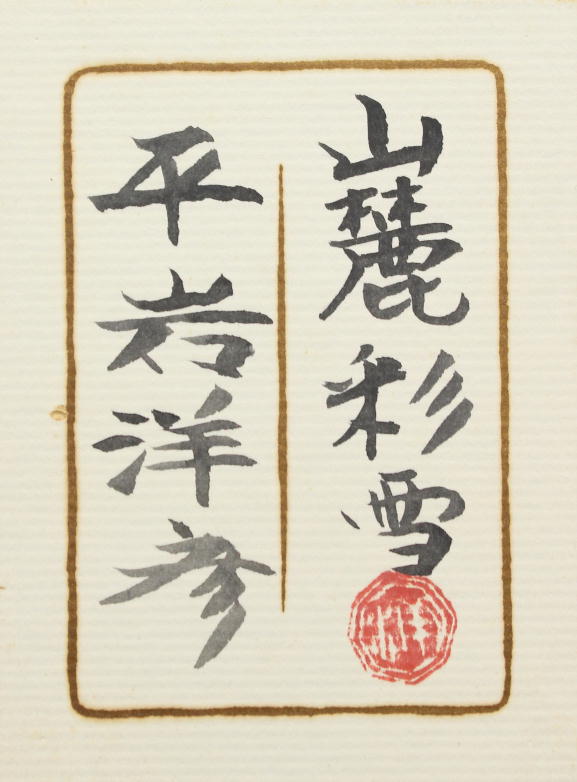 山麓彩雪
平岩洋彦